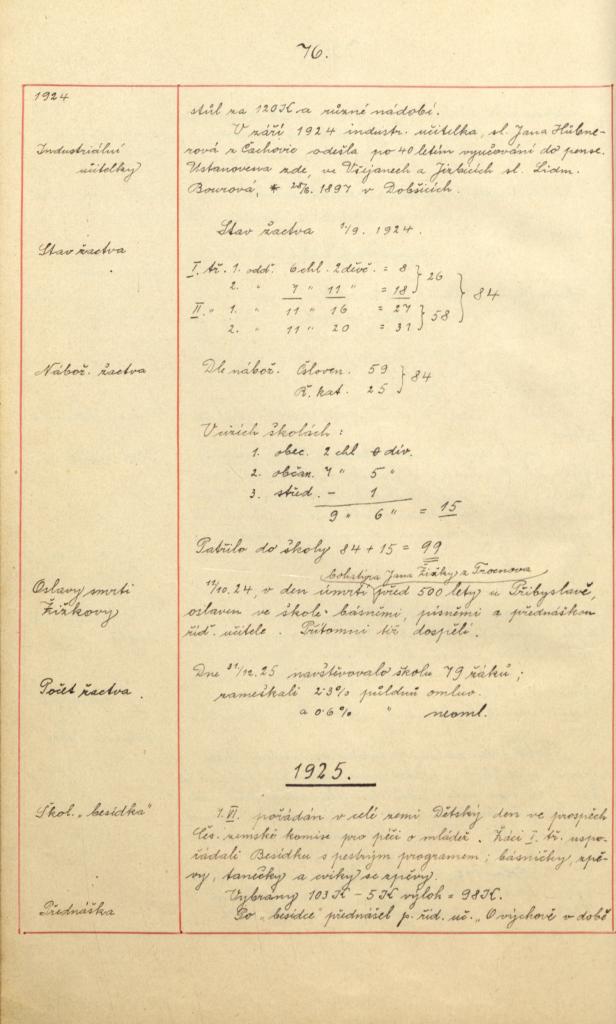 76.
1924
stůl za 120 K a různé nádobí.
V září 1924 industr. učitelka, sl. Jana Hübne-
Industriální
rová z Čachovic odešla po 40letém vyučování do pense.
učitelky
Ustanovena zde, ve Všejanech a Jizbicích sl. Lidm.
Bourová, * 28/6. 1897 v Dobšicích.
Stav žactva 1/9. 1924.
Stav žactva
I. tř. 1. odd. 6 chl. 2 děvč. = 8 } 26
2. " 7 " 11 " = 18 } 84
II. " 1. " 11 " 16 = 27 } 58
2. " 11 " 20 = 31
Nábož. žactva
Dle nábož. Čsloven. 59 } 84
Ř. kat. 25
V cizích školách:
1. obec. 2 chl 0 div.
2. občan. 7 " 5 "
3. střed. - 1
9 " 6 " = 15
Patřilo do školy 84 + 15 = 99
bohatýra Jana Žižky z Trocnova
Oslavy smrti
11/10. 24, v den úmrtí před 500 lety u Přibyslavě,
Žižkovy
oslaven ve škole básněmi, písněmi a přednáškou
říd. učitele. Přítomni též dospělí.
Dne 31/12. 25 navštěvovalo školu 79 žáků;
Počet žactva.
zameškali 2·3% půldnů omluv.
a 0·6% " neoml.
1925.
Škol. "besídka"
1. VI. pořádán v celé zemi Dětský den ve prospěch
Čes. zemské komise pro péči o mládež. Žáci I. tř. uspo-
řádali Besídku s pestrým programem; básničky, zpě-
vy, tanečky a cviky se zpěvy.
Vybrány 103 K - 5 K výloh = 98 K.
Přednáška
Po "besídce" přednášel p. říd. uč. "O výchově v době